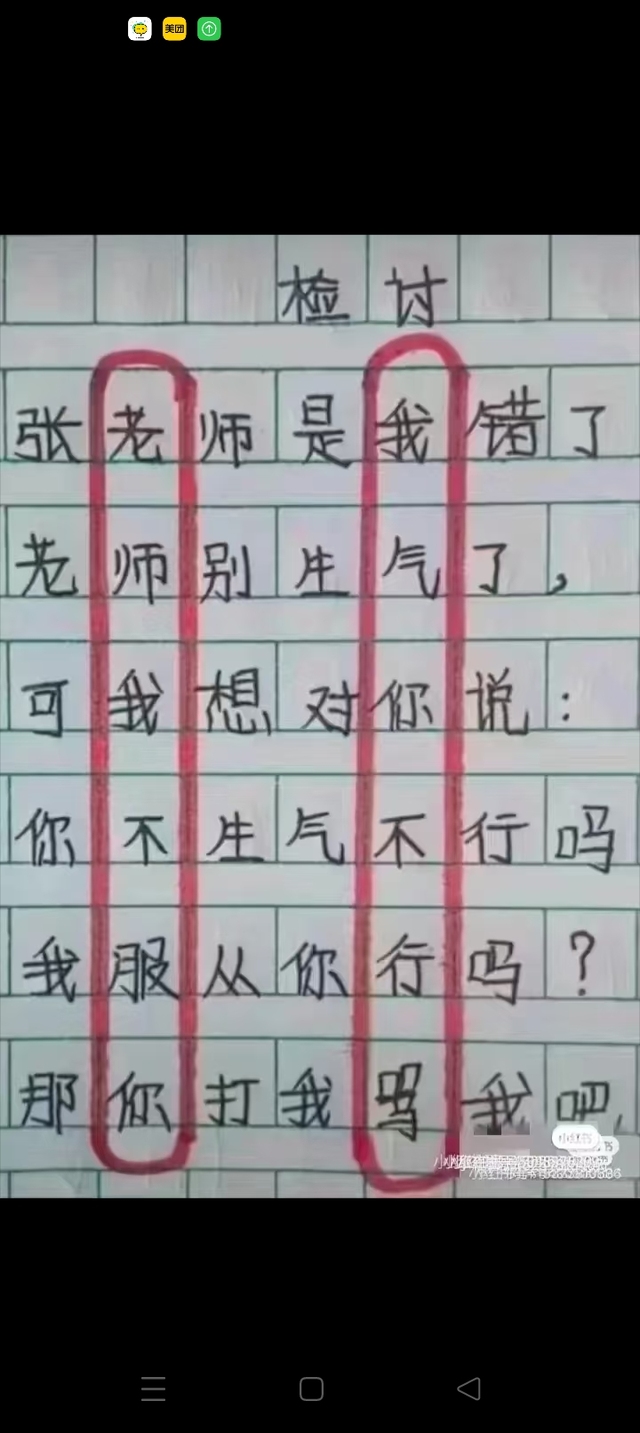 美团
检讨
张老师是我错了
老师别生气了，
可我想对你说：
你不生气不行吗
我服从你行吗？
那你打我骂我吧
小红书